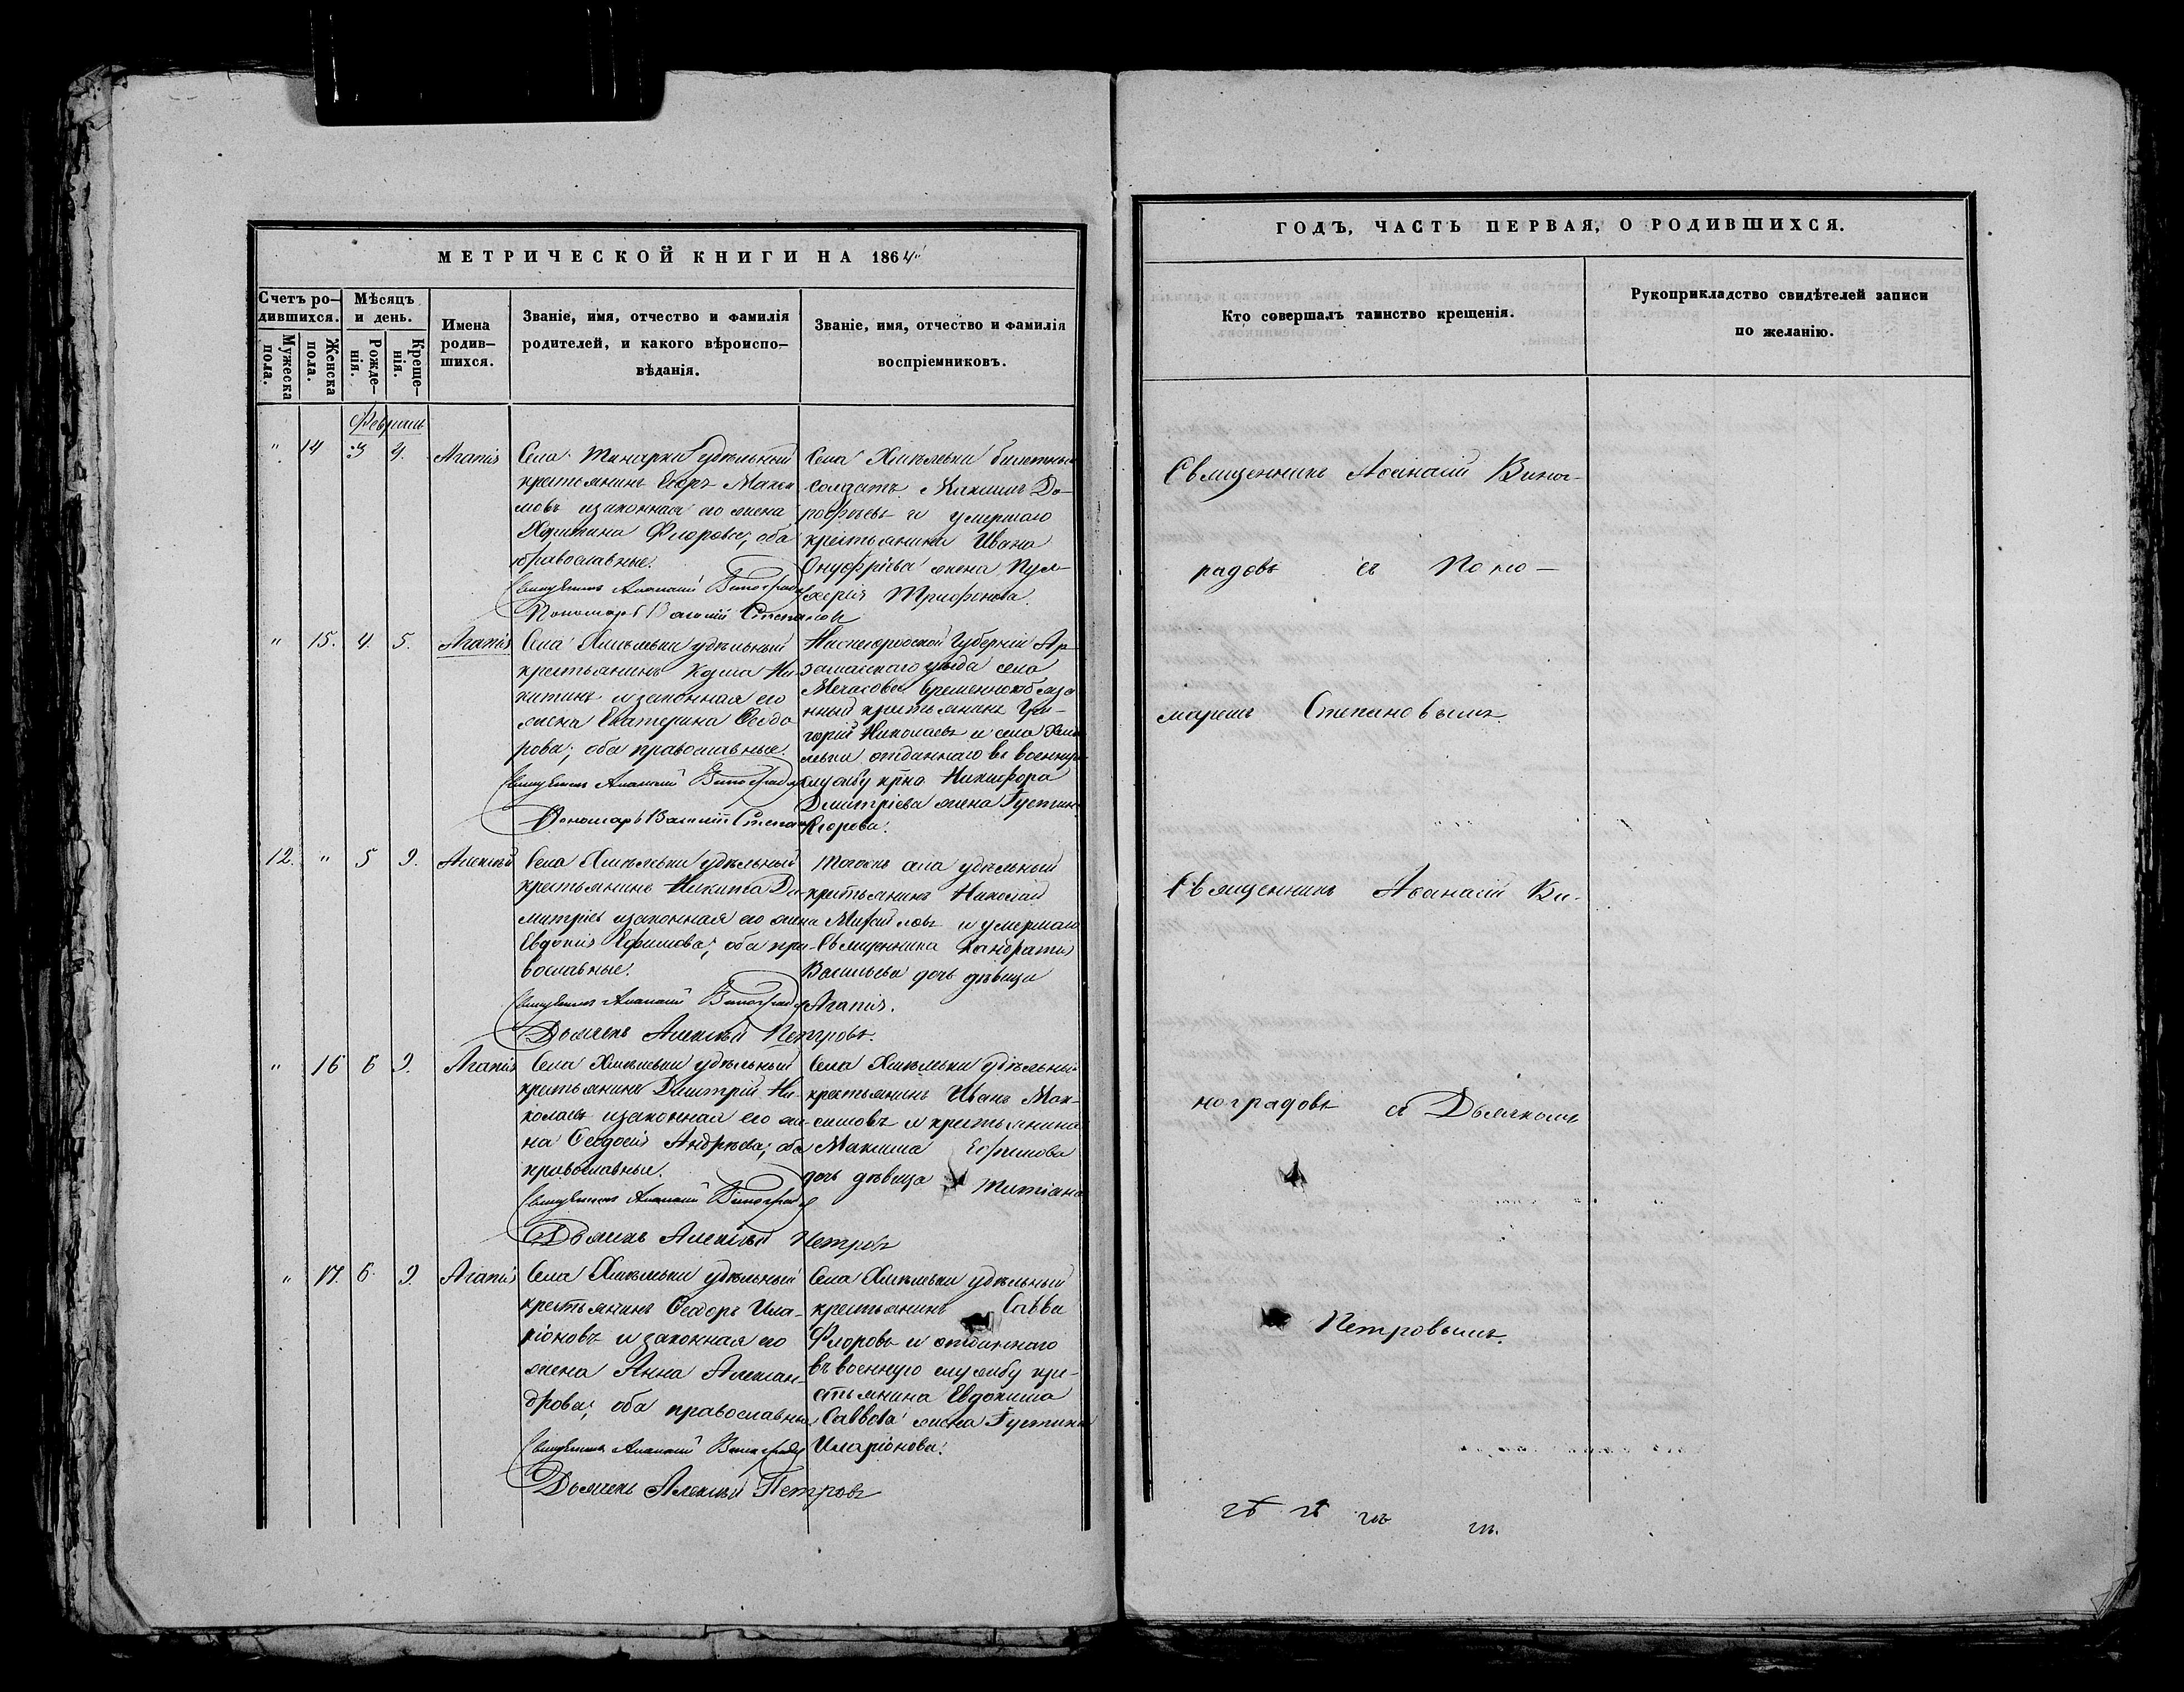 МЕТРИЧЕСКОЙ КНИГИ НА 1864
Счетъ ро-
дившихся.
Мужеска
пола.
Женска
пола.
Мѣсяцъ
и день.
Рожде-
нія.
Креще-
нія.
Имена
родив-
шихся.
Званіе, имя, отчество и фамилія
родителей, и какого вѣроиспо-
вѣданія.
Званіе, имя, отчество и фамилія
воспріемниковъ.
Февраль
" 14 3 4. Агапія
Села удѣльный
крестьянинъ Егоръ Макси
мовъ и законная его жена
Харитина Флорова; оба
православные.
Священникъ Аѳанасій Виноградовъ
Пономарь Василій Степановъ
Села Хмѣлевки билетный
солдатъ Максимъ До-
рофѣевъ и умершаго
крестьянина Ивана
Онуфріева жена Пул-
херія Трифонова.
" 15. 4. 5. Агапія
Села Хмѣлевки удѣльный
крестьянинъ Козма Ни-
китинъ и законная его
жена Екатерина Ѳедо
рова; оба православные.
Священникъ Аѳанасій Виноградовъ
Пономарь Василій Степановъ
Нижегородской Губерніи Ар-
замаскаго уѣзда села
временнообяза
нный крестьянинъ Гри-
горій Николаевъ и села Хмѣ
левки отданнаго въ военную
службу кр-на Никифора
Дмитріева жена Іустина
Егорова.
12. " 5 9. Алексѣй
Села Хмѣлевки удѣльный
крестьянинъ Никита Ди-
митріевъ и законная его жена
Евдокія Ефимова; оба пра-
вославные.
Священникъ Аѳанасій Виноградовъ
Дьячекъ Алексѣй Петровъ.
Тогожъ села удѣльный
крестьянинъ Николай
Михайловъ и умершаго
Священника Кандратія
Васильева дочь дѣвица
Агапія.
" 16 6 9. Агапія
Села Хмѣлевки удѣльный
крестьянинъ Дмитрій Ни-
колаевъ и законная его же-
на Ѳеодосія Андреева; оба
православные.
Священникъ Аѳанасій Виноградовъ
Дьячекъ Алексѣй Петровъ
Села Хмѣлевки удѣльный
крестьянинъ Иванъ Мак-
симовъ и крестьянина
Максима Ефимова
дочь дѣвица Татіана
" 17. 6. 9. Агапія
Села Хмѣлевки удѣльный
крестьянинъ Ѳеодоръ Ила-
ріоновъ и законная его
жена Анна Алексан-
дрова; оба православные
Священникъ Аѳанасій Виноградовъ
Дьячекъ Алексѣй Петровъ
Села Хмѣлевки удѣльный
крестьянинъ Савва
Флоровъ и отданнаго
въ военную службу кре-
стьянина Евдокима
Саввова жена Іустина
Иларіонова.
ГОДЪ, ЧАСТЬ ПЕРВАЯ, О РОДИВШИХСЯ.
Кто совершалъ таинство крещенія.
Рукоприкладство свидѣтелей записи
по желанію.
Священникъ Аѳанасій Виног-
радовъ съ Поно-
маремъ Степановымъ.
Священникъ Аѳанасій Ви-
ноградовъ съ Дьячкомъ
Петровымъ.